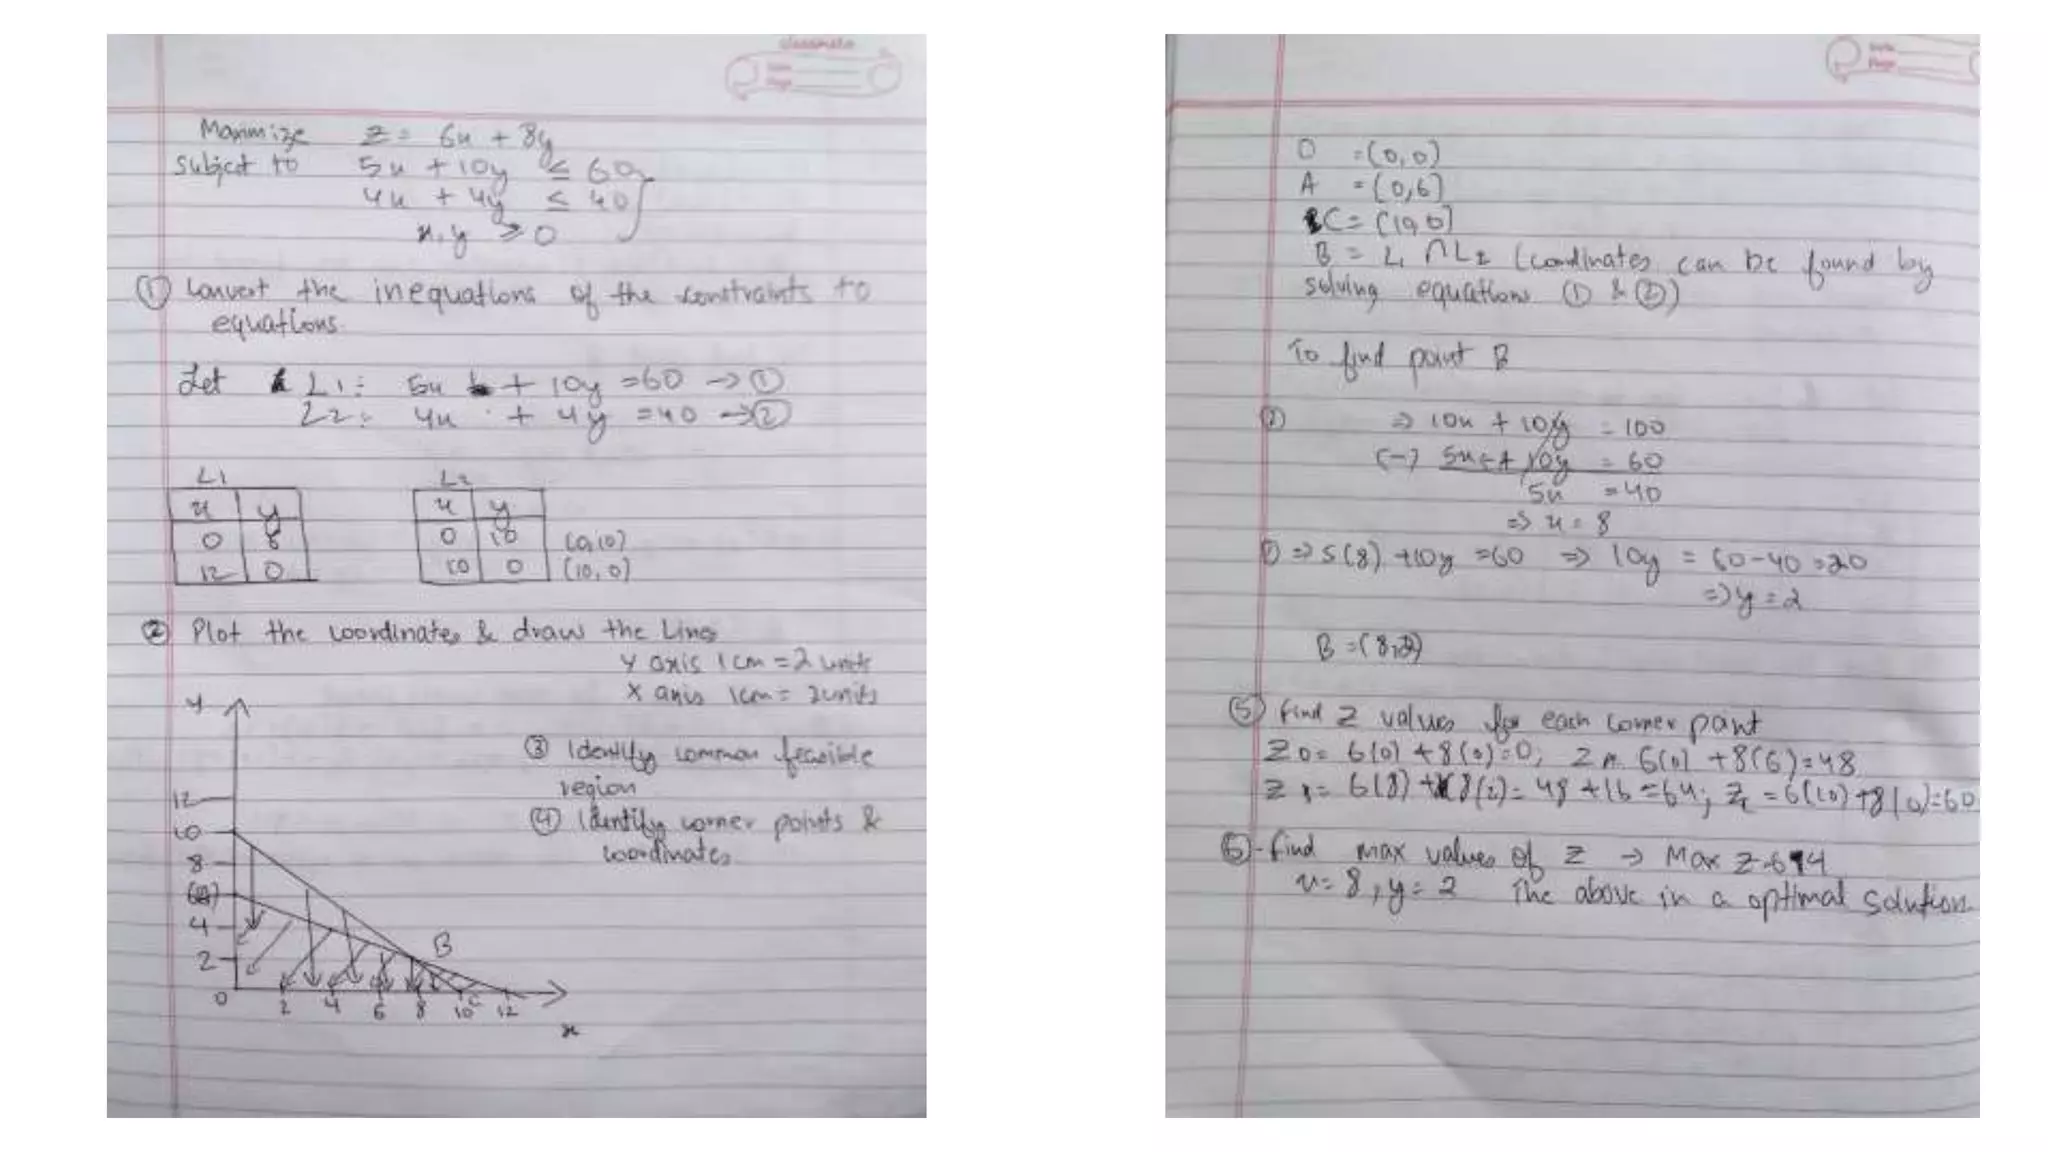 classmate
Date
Page
Maximize Z = 6x + 8y
Subject to 5x + 10y ≤ 60
4x + 4y ≤ 40
x, y ≥ 0
① Convert the inequations of the constraints to
equations.
Let L1: 5x + 10y = 60 → ①
L2: 4x + 4y = 40 → ②
L1 L2
x y x y
0 6 0 10 (0,10)
12 0 10 0 (10,0)
② Plot the coordinates & draw the Lines
Y axis 1cm = 2 units
X axis 1cm = 2units
y
③ Identify common feasible
region
④ Identify corner points &
coordinates
12
10
8
4
2
B
0 2 4 6 8 10 C 12
x
Date
Page
O = (0,0)
A = (0,6)
C = (10,0)
B = L1 ∩ L2 (coordinates can be found by
solving equations ① & ②)
To find point B
② ⇒ 10x + 10y = 100
(-) 5x + 10y = 60
5x = 40
⇒ x = 8
① ⇒ 5(8) + 10y = 60 ⇒ 10y = 60 - 40 = 20
⇒ y = 2
B = (8,2)
⑤ Find Z values for each corner point
Z0 = 6(0) + 8(0) = 0; ZA = 6(0) + 8(6) = 48
ZB = 6(8) + 8(2) = 48 + 16 = 64; Zc = 6(10) + 8(0) = 60
⑥ - Find max values of Z → Max Z = 64
x = 8, y = 2 The above in a optimal solution